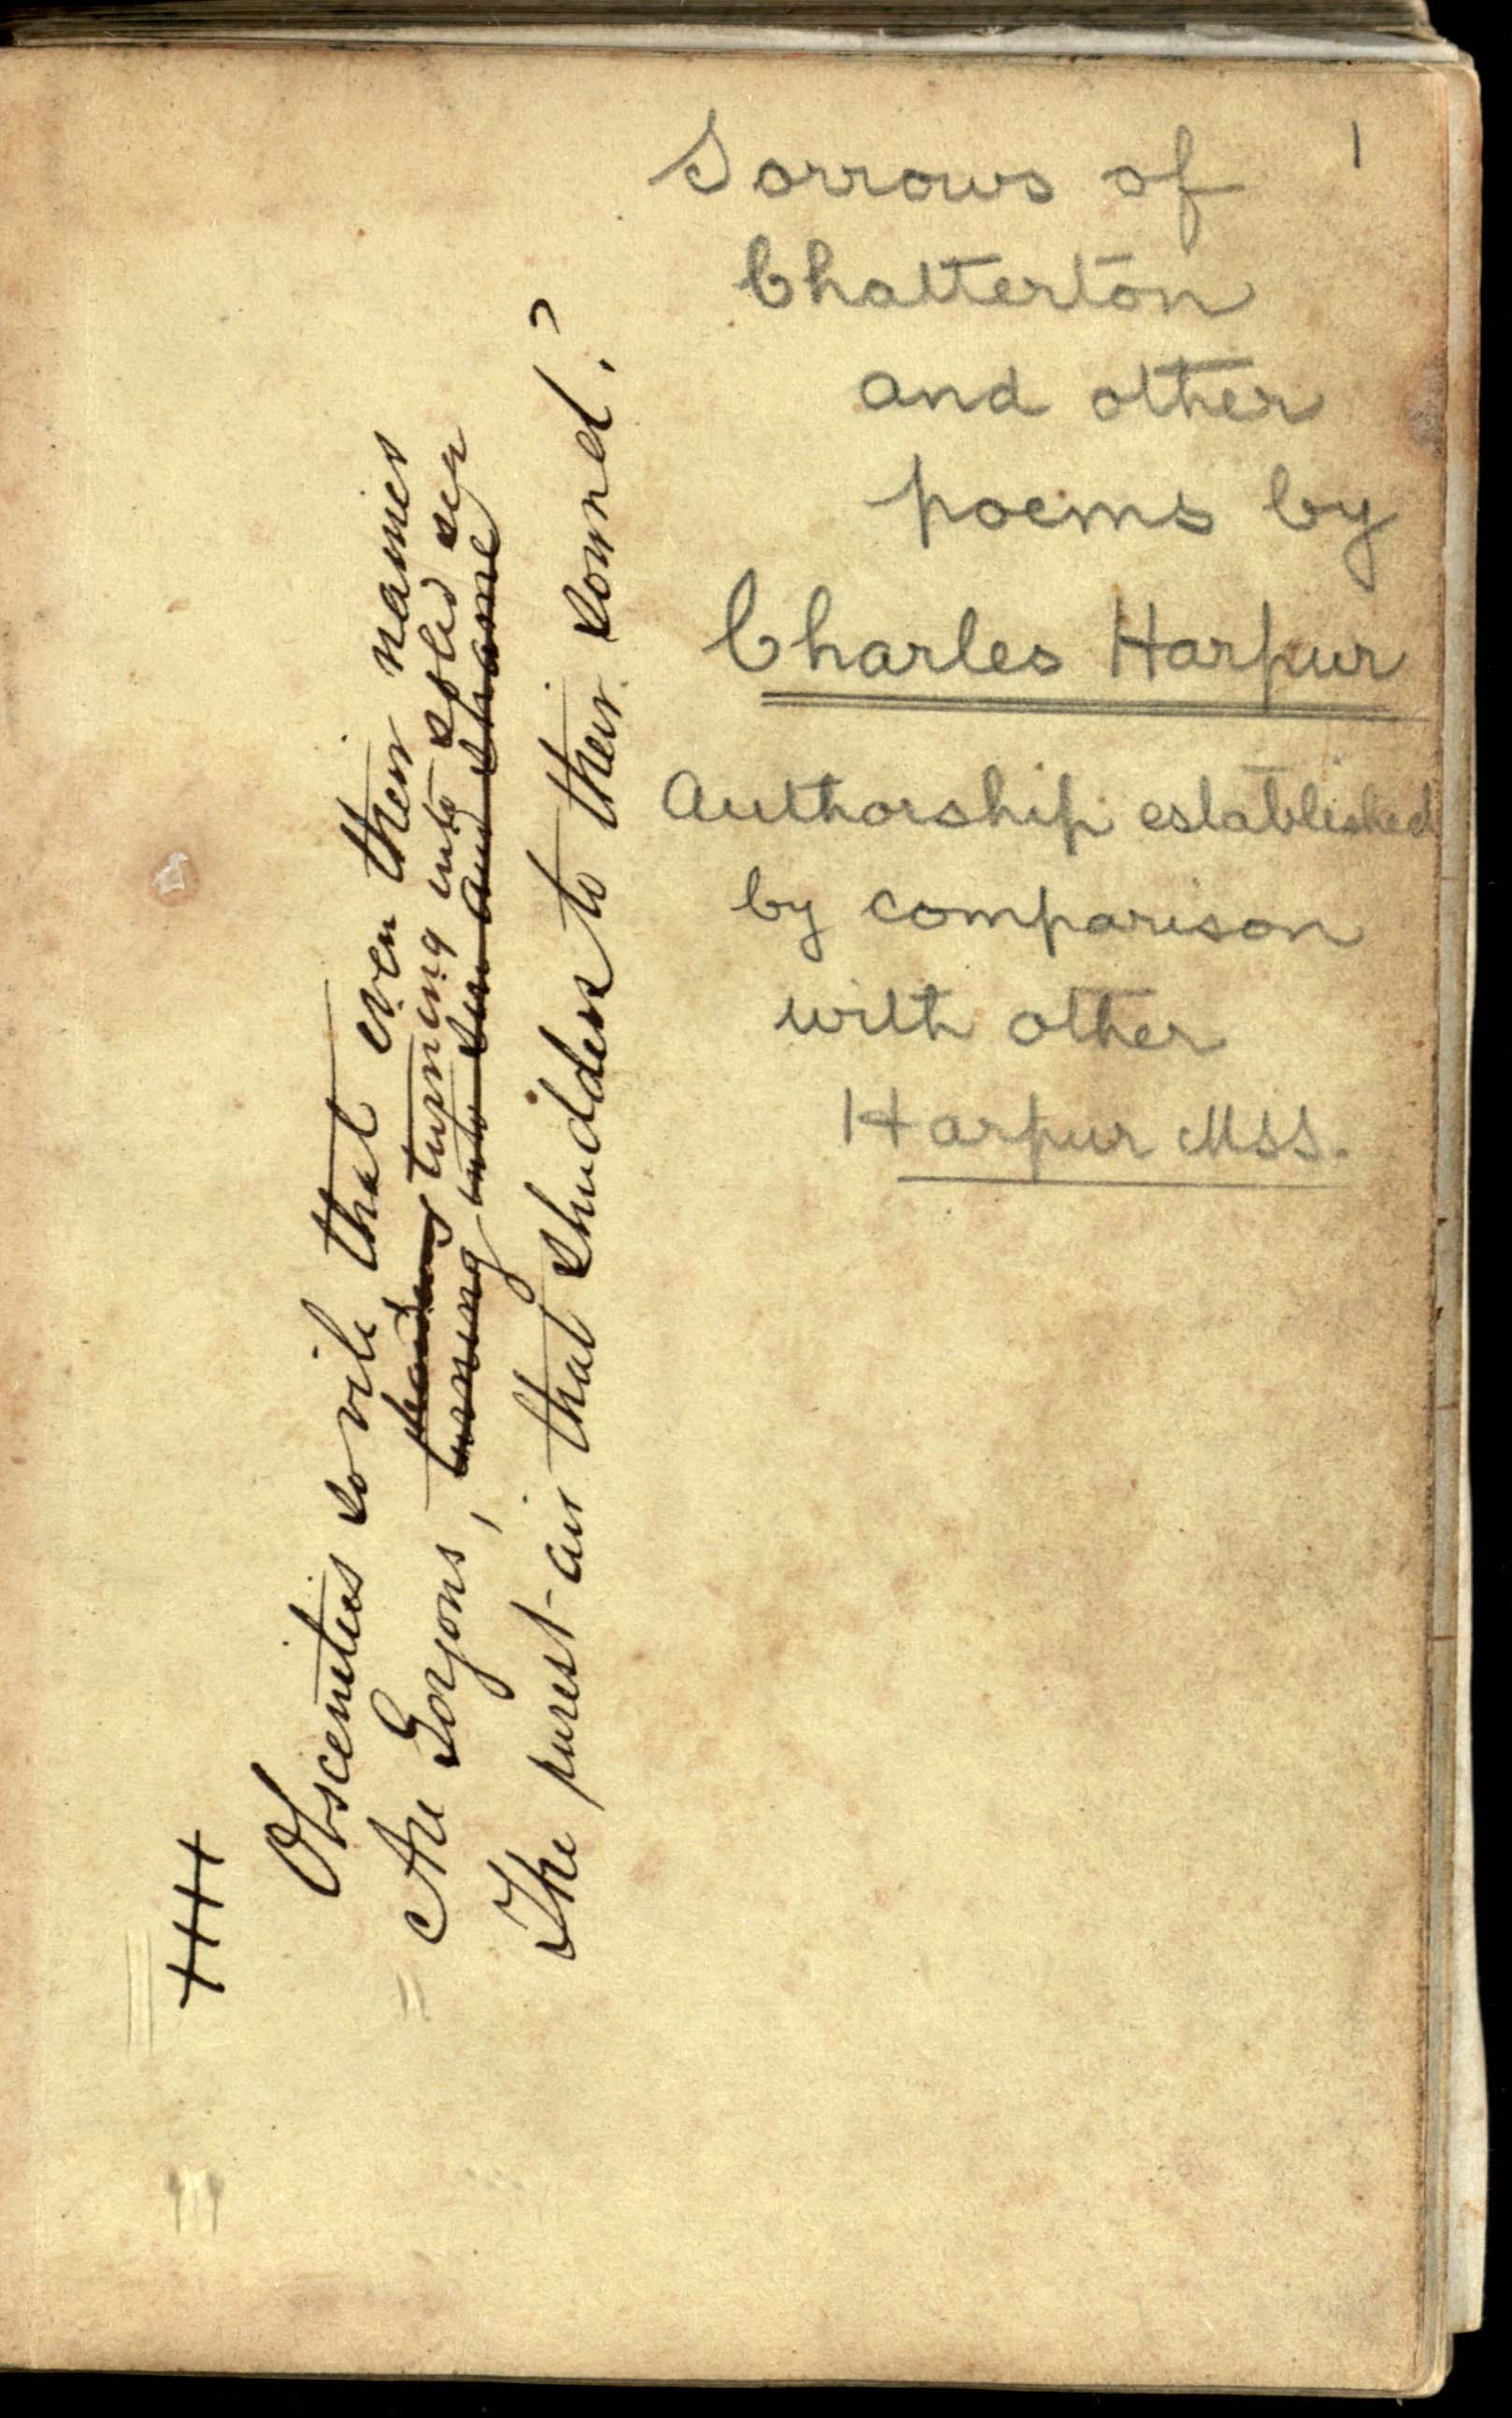 1
Sorrows of
Chatterton
and other
poems by
Charles Harpur
Authorship established
by comparison
with other
Harpur MSS.
Obscenities so vile that even their names
turning into solid sin
Are Gorgons, turning into sin and shame
The purest air that shudders to their sound.?